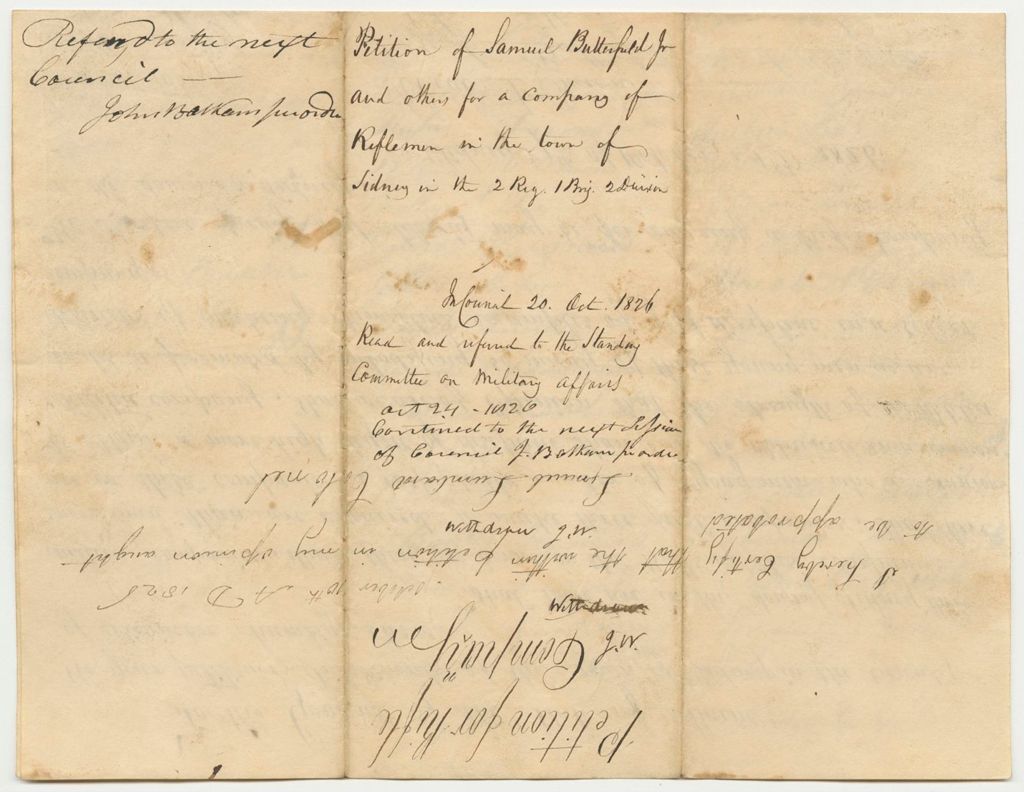 Referd to the next
Council —
John Balkam pr order
Petition of Samuel Butterfield Jr
and others for a Company of
Riflemen in the town of
Sidney in the 2 Reg. 1 Brig. 2 Division
In Council 20. Oct. 1826
Read and referred to the Standing
Committee on Military affairs
oct 24 - 1826
Continued to the next Session
of Council J. Balkam pr order
Lemuel Colonel
Withdrawn J.W.
I hereby Certify that the within petition in my opinion aught
to be approbated
october 10th A D 1826
Withdrawn
J.W.
Petition for Rifle
Company in